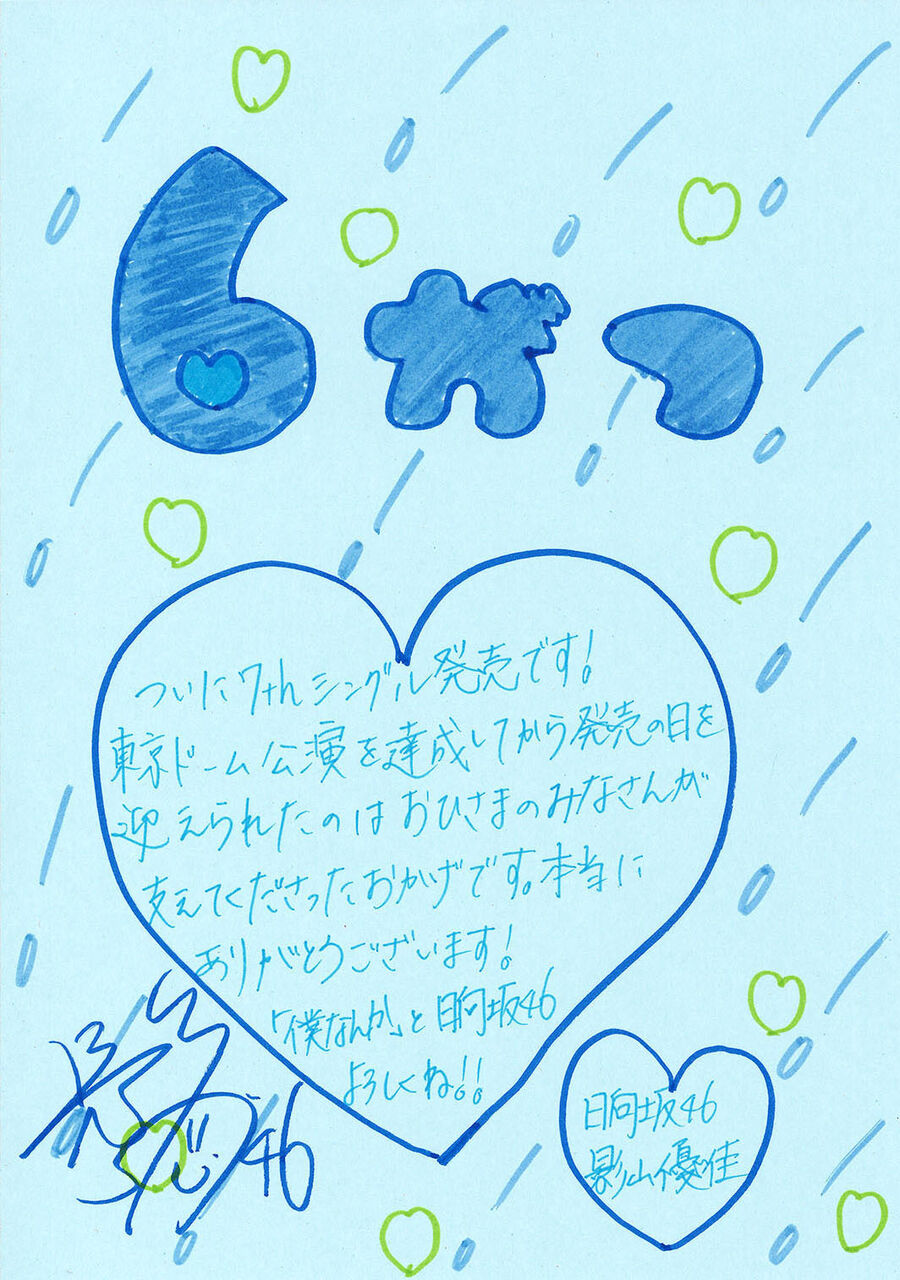 6がつ
ついに7thシングル発売です!
東京ドーム公演を達成してから発売の日を
迎えられたのはおひさまのみなさんが
支えてくださったおかげです。本当に
ありがとうございます!
「僕なんか」と日向坂46
よろしくね!!
46
日向坂46
影山優佳